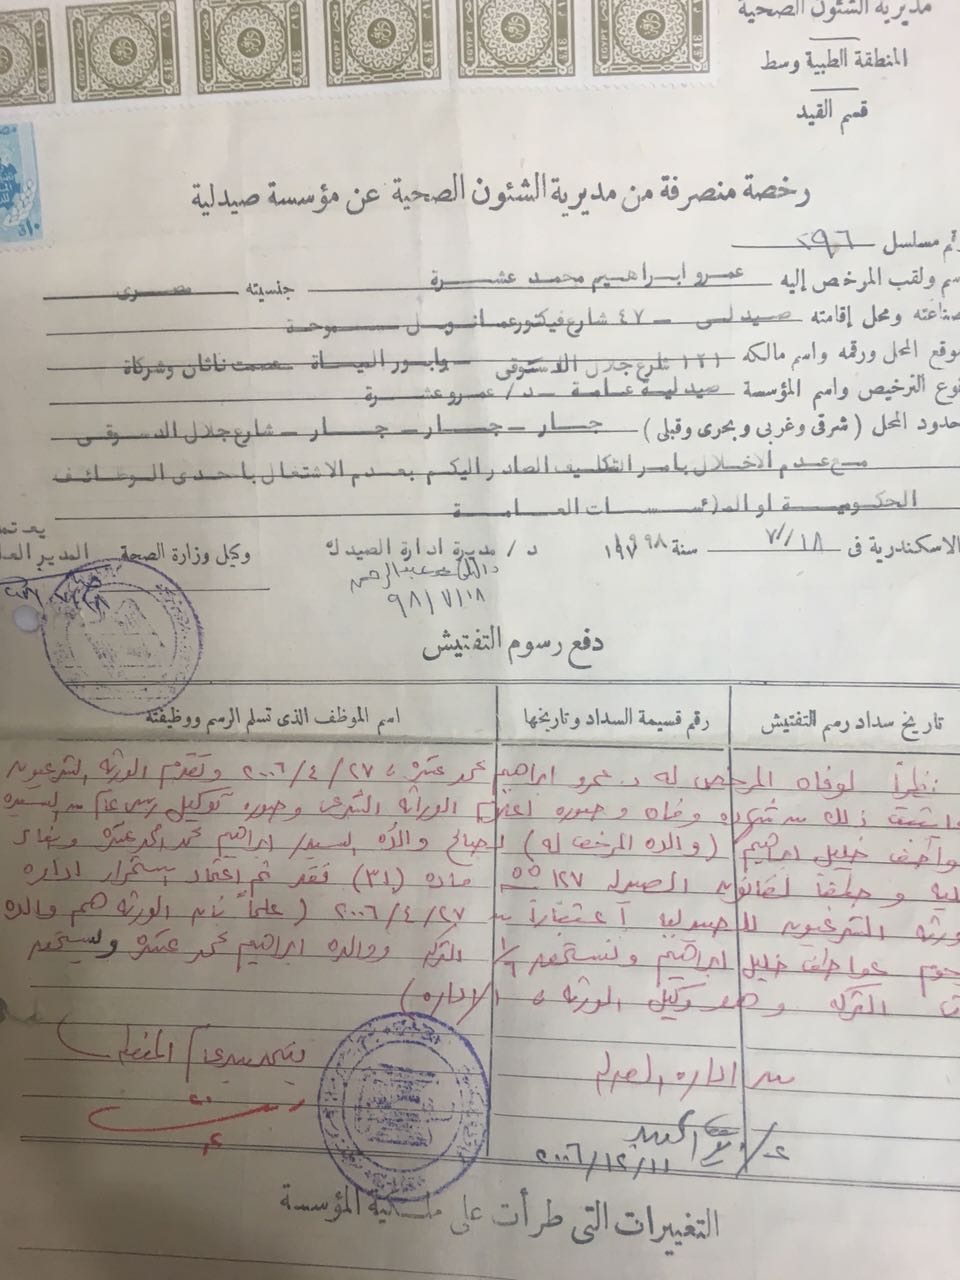 مديرية الشئون الصحية
المنطقة الطبية وسط
قسم القيد
EGYPT
رخصة منصرفة من مديرية الشئون الصحية عن مؤسسة صيدلية
رقم مسلسل ٢٩٦
اسم ولقب المرخص إليه عمرو ابراهيم محمد عشرة جنسيته مصرى
صناعته ومحل إقامته صيدلى - ٤٧ شارع فيكتور عمانويل سموحة
موقع المحل ورقمه واسم مالكه ١٢١ شارع جلال الدسوقى - وابور المياة عصمت ناثان وشركاة
نوع الترخيص واسم المؤسسة صيدلية عامة - د/ عمرو عشرة
حدود المحل ( شرقى وغربى وبحرى وقبلى ) جار - جار - جار - شارع جلال الدسوقى
مع عدم الاخلال بامر التكليف الصادر اليكم بعدم الاشتغال باحدى الوظائف
الحكومية او المؤسسات العامة
الاسكندرية فى ٧/١٨ سنة ١٩٩٨
يعتمد
د / مديرة ادارة الصيدلة وكيل وزارة الصحة المدير العام
٩٨/٧/١٨
دفع رسوم التفتيش
تاريخ سداد رسم التفتيش
رقم قسيمة السداد وتاريخها
اسم الموظف الذى تسلم الرسم ووظيفته
نظراً لوفاة المرخص له د. عمرو ابراهيم محمد عشرة فى ٢٠٠٦/٤/٢٧ وتقدم الورثة الشرعيون
ذلك من شهادة وفاة وصورة اعلام الوراثة الشرعى وصورة توكيل رسمى عام من السيدة
عواطف خليل ابراهيم (والدة المرخص له) لصالح والده السيد/ ابراهيم محمد عشرة وبناء
عليه وطبقاً لقانون الصيدلة ١٢٧ مادة (٣١) فقد تم اعتماد استمرار ادارة
الورثة الشرعيون للصيدلية اعتباراً من ٢٠٠٦/٤/٢٧ ( علماً بأن الورثة هم والدة
المرحوم عواطف خليل ابراهيم وتستحق ١/٦ التركة ووالده ابراهيم محمد عشرة ويستحق
باقى التركة وهو وكيل الورثة فى الادارة )
مدير ادارة الصيدلة
٢٠٠٦/١٢/١١
التغييرات التى طرأت على ملكية المؤسسة